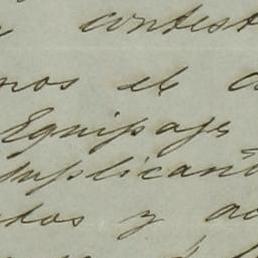 contest
nos el a
Equipage
suplicant
dos y ac